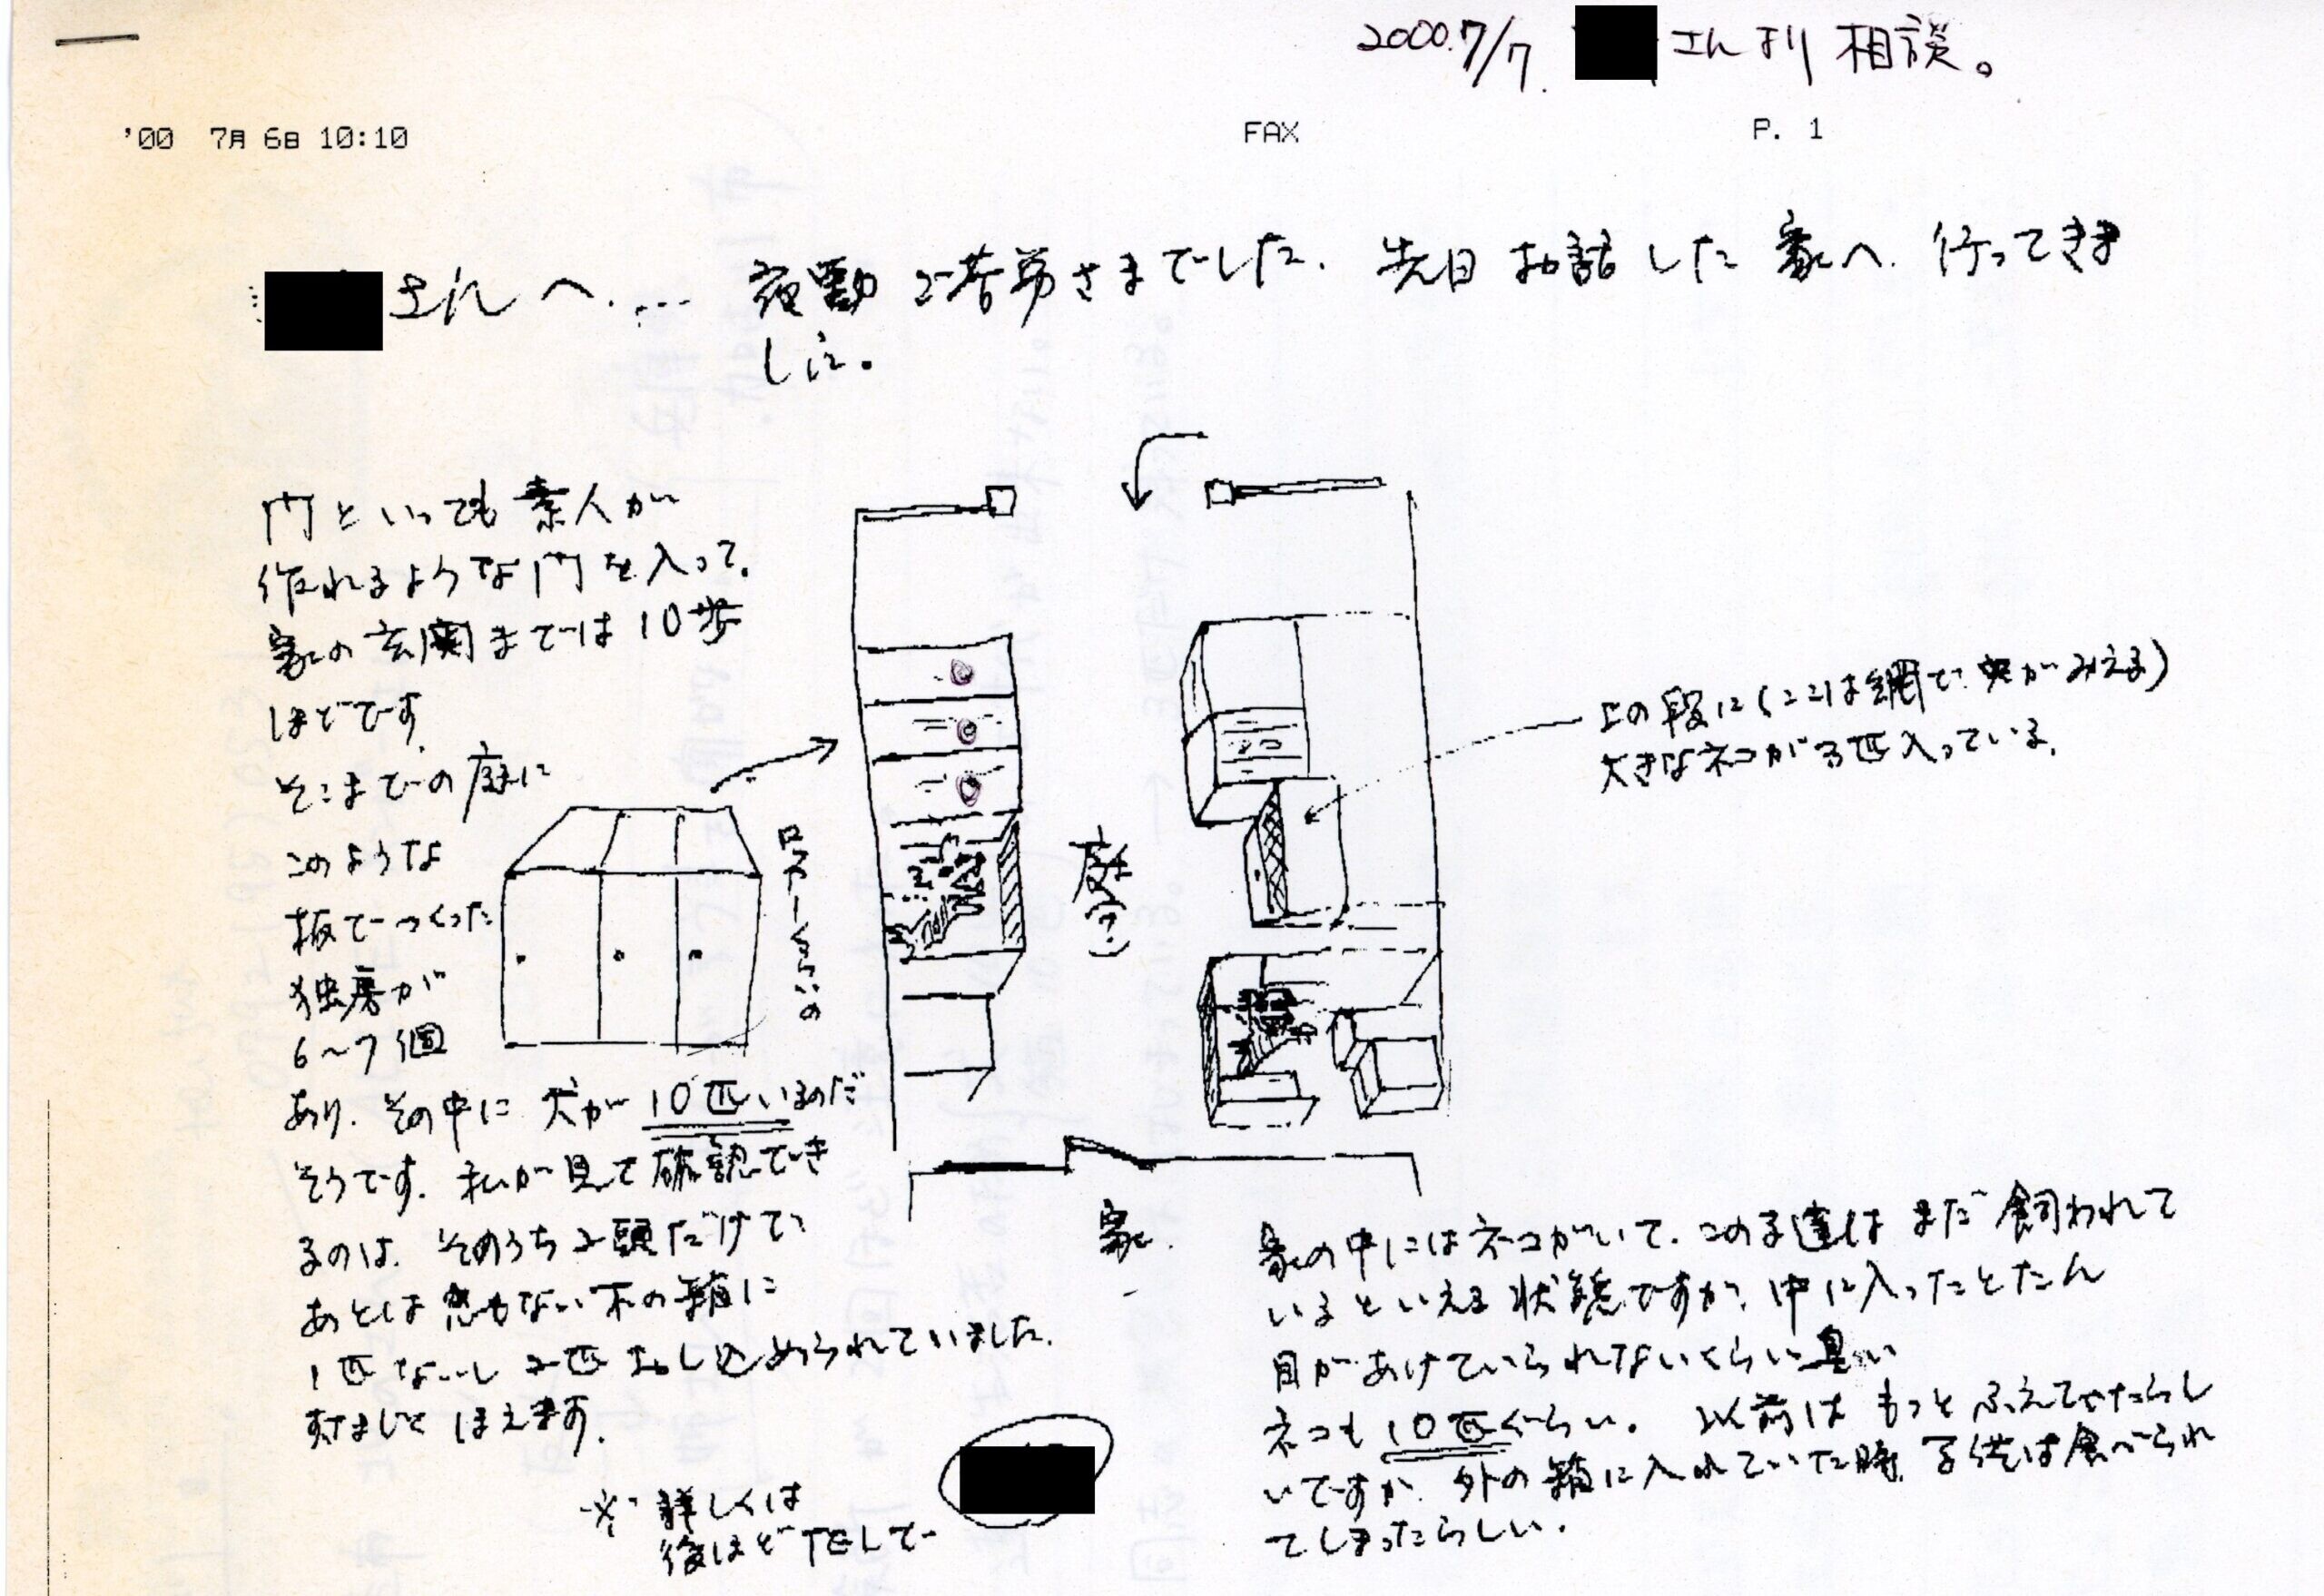 2000.7/7. さんより 相談。
'00 7月 6日 10:10 FAX P. 1
さんへ.… 夜勤ご苦労さまでした. 先日お話した家へ. 行ってきま
した。
門といっても素人が
作れるような門を入って.
家の玄関までは10歩
ほどです.
そこまでの庭に
このような
板でつくった
独房が
6〜7個
あり. その中に犬が10匹いるのだ
そうです. 私が見て確認でき
るのは. そのうち2頭だけで、
あとは窓もない木の箱に
1匹ないし2匹おし込められていました.
すさまじく ほえます.
ロッカーくらいの
庭(?)
上の段に(ここは網で中がみえる)
大きなネコが3匹入っている.
家.
家の中にはネコがいて. この子達はまだ飼われて
いるといえる状態ですが、中に入ったとたん
目があけていられないくらい臭い
ネコも10匹ぐらい. 以前はもっとふえてたらし
いですが. 外の箱に入れていた時. 子供は食べられ
てしまったらしい.
※ 詳しくは
後ほどTELで